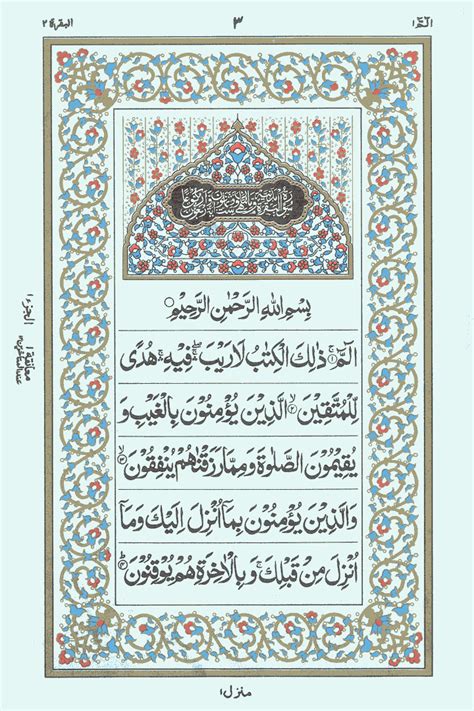 الٓمّٓ ۱
۳
البقرة ۲
بِسْمِ اللهِ الرَّحْمٰنِ الرَّحِيْمِ
الٓمّٓ ۚ﴿۱﴾ ذٰلِكَ الْكِتٰبُ لَا رَيْبَ ۛۖ فِيْهِ ۛۚ هُدًى
لِّلْمُتَّقِيْنَ ۙ﴿۲﴾ الَّذِيْنَ يُؤْمِنُوْنَ بِالْغَيْبِ وَ
يُقِيْمُوْنَ الصَّلٰوةَ وَمِمَّا رَزَقْنٰهُمْ يُنْفِقُوْنَ ۙ﴿۳﴾
وَالَّذِيْنَ يُؤْمِنُوْنَ بِمَآ اُنْزِلَ اِلَيْكَ وَمَآ
اُنْزِلَ مِنْ قَبْلِكَ ۚ وَبِالْاٰخِرَةِ هُمْ يُوْقِنُوْنَ ؕ
الجزء ۱
معانقة ۱
منزل ۱